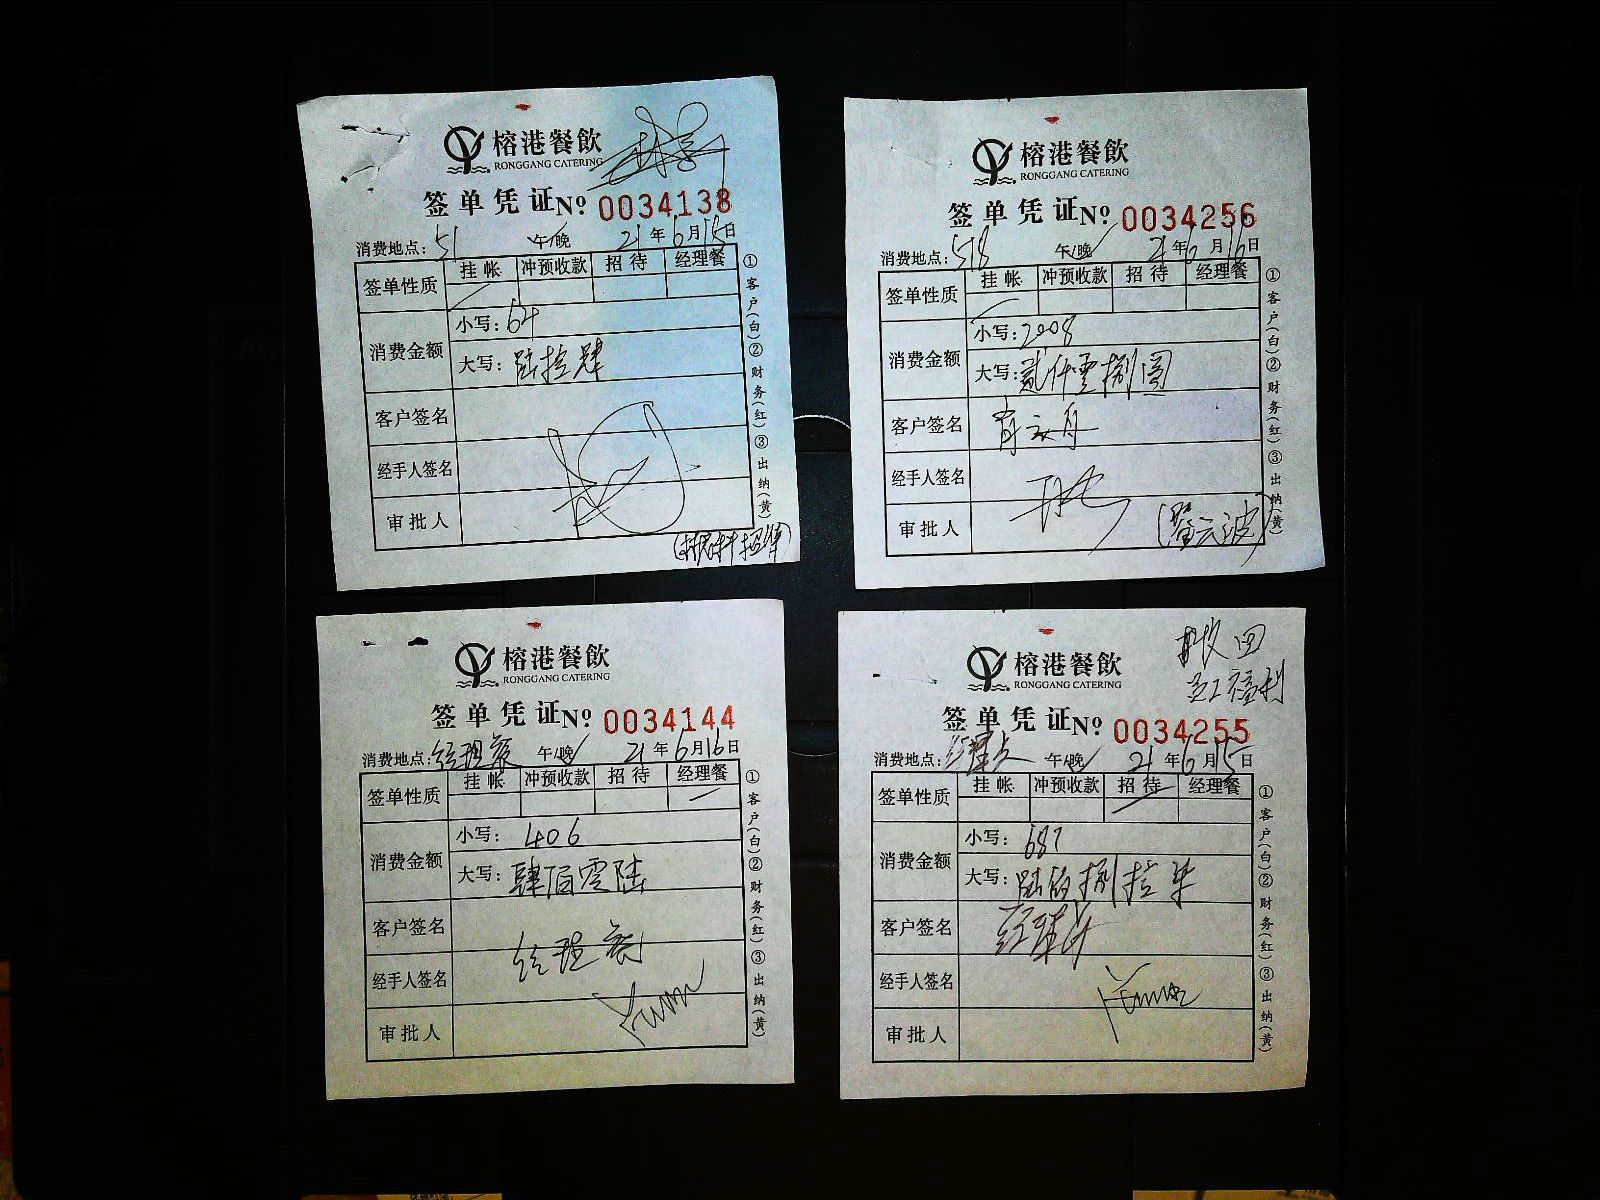 榕港餐飲
RONGGANG CATERING
签单凭证№ 0034138
消费地点: 51 午/晚 21年6月15日
签单性质 挂帐 冲预收款 招待 经理餐
消费金额 小写: 64
大写: 陆拾肆
客户签名
经手人签名
审批人
①客户(白)②财务(红)③出纳(黄)
榕港餐飲
RONGGANG CATERING
签单凭证№ 0034256
消费地点: 518 午/晚 21年6月16日
签单性质 挂帐 冲预收款 招待 经理餐
消费金额 小写: 2008
大写: 贰仟零捌圆
客户签名
经手人签名
审批人
①客户(白)②财务(红)③出纳(黄)
榕港餐飲
RONGGANG CATERING
签单凭证№ 0034144
消费地点: 经理餐 午/晚 21年6月16日
签单性质 挂帐 冲预收款 招待 经理餐
消费金额 小写: 406
大写: 肆佰零陆
客户签名
经手人签名
审批人
①客户(白)②财务(红)③出纳(黄)
榕港餐飲
RONGGANG CATERING
签单凭证№ 0034255
消费地点: 午/晚 21年6月15日
签单性质 挂帐 冲预收款 招待 经理餐
消费金额 小写: 687
大写: 陆佰捌拾柒
客户签名
经手人签名
审批人
①客户(白)②财务(红)③出纳(黄)